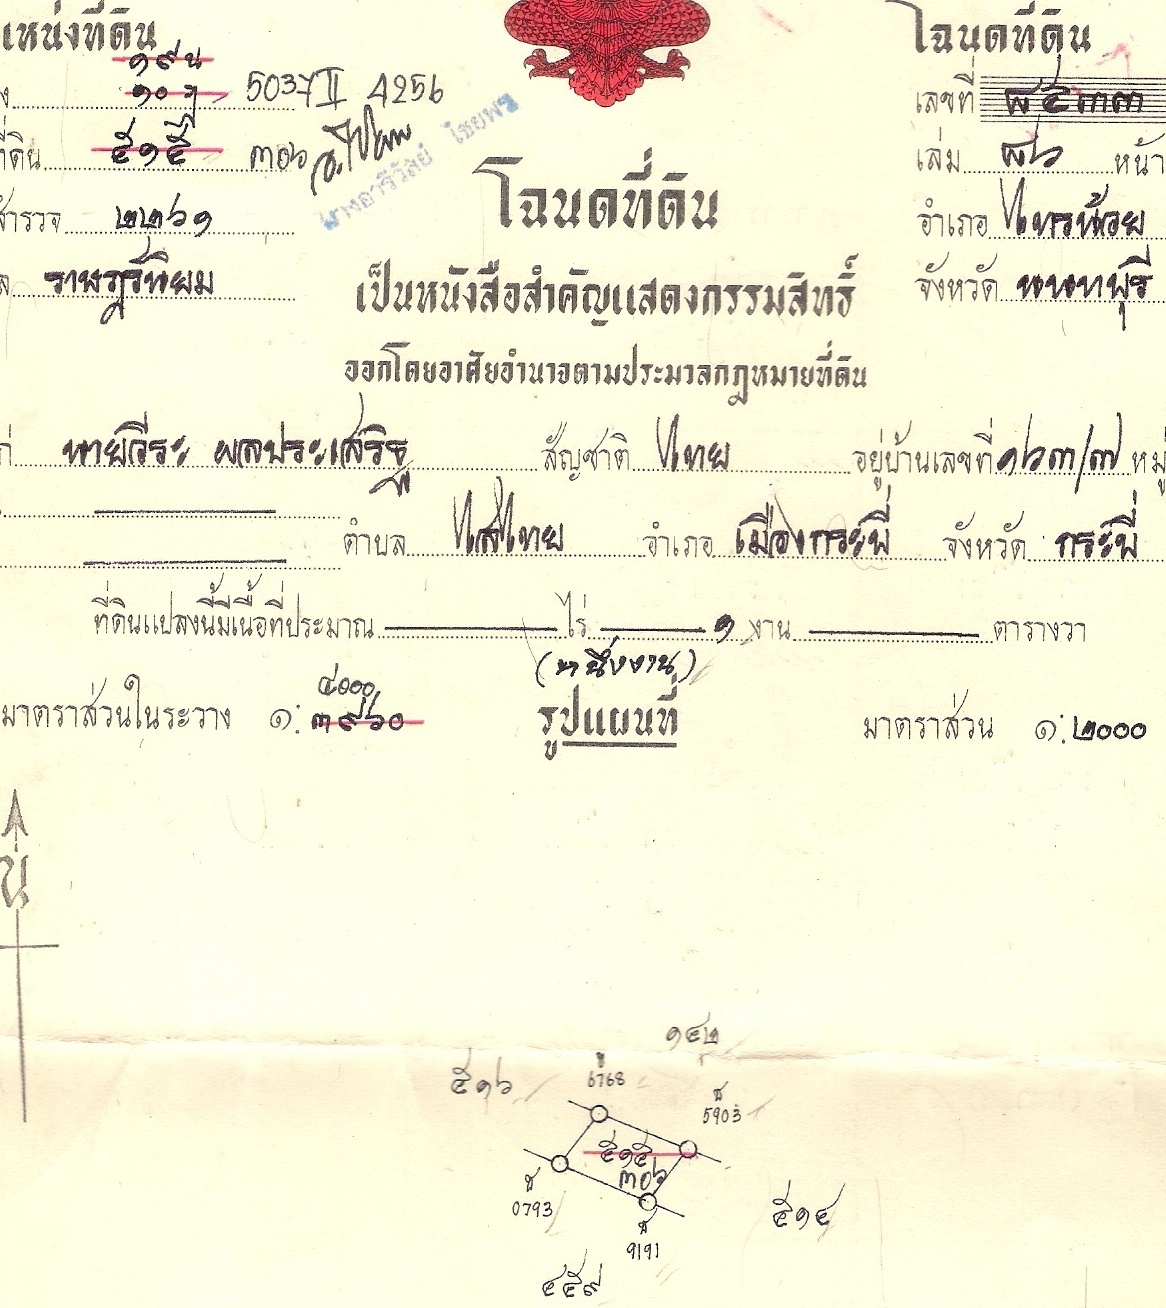 แหน่งที่ดิน
โฉนดที่ดิน
๑๙ น
ง ๑๐ 5037 II 4256
เลขที่ ๘๔๓๓
ที่ดิน ๕๑๕ ๓๐๖
เล่ม ๘๖ หน้า
นางอารีวัลย์ ไชยพร
โฉนดที่ดิน
สำรวจ ๒๒๖๑
อำเภอ ไทรน้อย
ล ราษฎร์นิยม
จังหวัด นนทบุรี
เป็นหนังสือสำคัญแสดงกรรมสิทธิ์
ออกโดยอาศัยอำนาจตามประมวลกฎหมายที่ดิน
นายวีระ ผลประเสริฐ สัญชาติ ไทย อยู่บ้านเลขที่ ๑๖๓/๗ หมู่
ตำบล ไสไทย อำเภอ เมืองกระบี่ จังหวัด กระบี่
ที่ดินแปลงนี้มีเนื้อที่ประมาณ ไร่ ๑ งาน ตารางวา
(หนึ่งงาน)
๔๐๐๐
มาตราส่วนในระวาง ๑: ๓๙๖๐ รูปแผนที่ มาตราส่วน ๑: ๒๐๐๐
น
๑๔๒
๕๑๖ 6768
5903
๕๑๕
๓๐๖
0793
๕๑๔
9191
๔๕๙